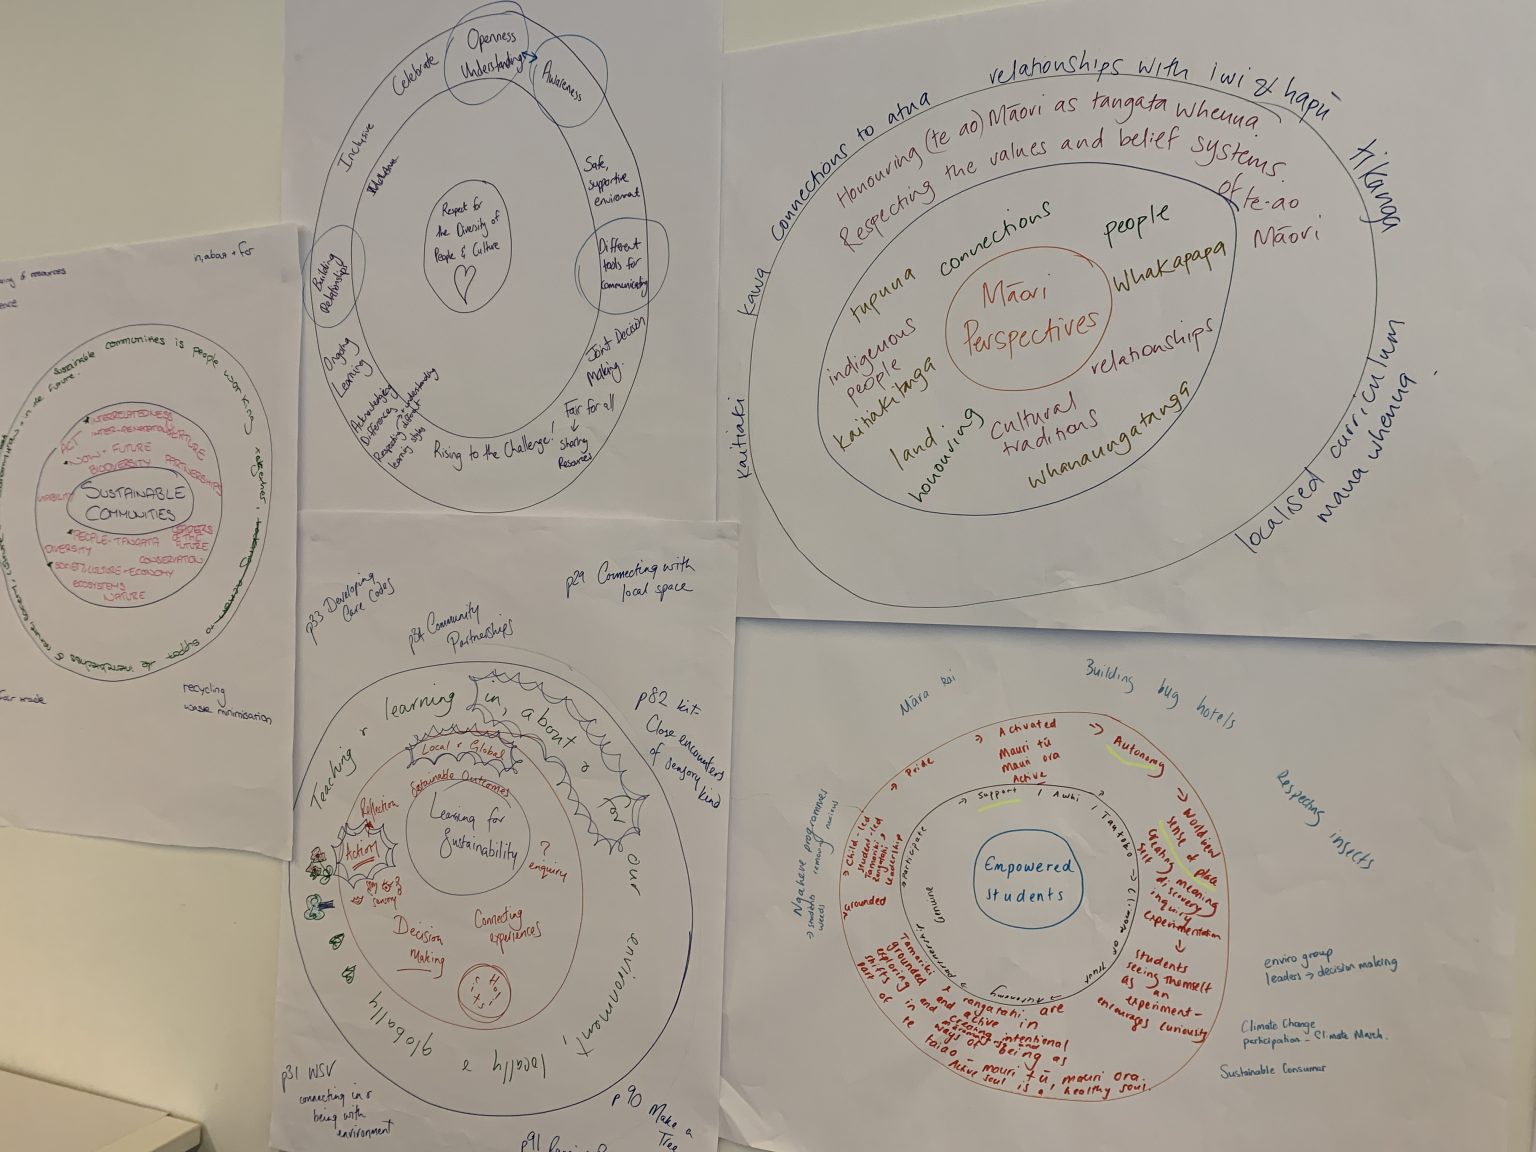 in, about + for
Sustainable communities is people working together,
future.
INTERRELATEDNESS
ACT
NOW + FUTURE
BIODIVERSITY
PARTNERSHIPS
SUSTAINABLE
COMMUNITIES
LEADERS
OF THE
FUTURE
PEOPLE - TANGATA
DIVERSITY
CONSERVATION
ECONOMY
ECOSYSTEMS
NATURE
recycling
waste minimisation
Celebrate
Openness
Understanding
Awareness
Inclusive
Safe,
supportive
environment
Respect for
the Diversity of
People & Culture
Building
Relationships
Different
tools for
communicating
Ongoing
Learning
Joint Decision
Making.
Acknowledging
Differences
Respecting different
learning styles
+ understanding
Rising to the Challenge!
Fair for all
Sharing
Resources
connections to atua
relationships with iwi & hapū
tikanga
Honouring (te ao) Māori as tangata whenua
Respecting the values and belief systems
of te-ao
Māori
kawa
kaitiaki
connections
people
tupuna
whakapapa
Māori
Perspectives
indigenous
people
relationships
kaitiakitanga
land
honouring
cultural
traditions
whanaungatanga
localised curriculum
mana whenua
p33 Developing
Care Codes
p34 Community
Partnerships
p29 Connecting with
local space
Teaching + learning in, about & for our environment, locally & globally
Local + Global
Sustainable Outcomes
Learning for
Sustainability
Reflection
Action
?
enquiry
Decision
Making
Connecting
experiences
p82 kit=
Close encounters
of sensory kind
p31 WSV
connecting in &
being with
environment
p90 Make a
Tree
p91
Māra kai
Building bug hotels
Respecting insects
Ngahere programmes
→ students remove noxious
weeds
→ Pride
→ Activated
Mauri tū
Mauri ora
Active
→ Autonomy
→ Worldview
sense of place
creating meaning
self discovery
inquiry
experimentation
students
seeing themself
as an
experiment -
encourages curiousty
→ Child-led
student-led
Tamariki,
rangatahi,
leadership
→ Grounded
→ Support / Awhi / Tautoko
→ Participate
Genuine
→ Autonomy
Empowered
students
Tamariki & rangatahi are
grounded and active in
exploring and creating intentional
shifts in ways of being as
part of te taiao - mauri tū, mauri ora.
Active soul is a healthy soul.
enviro group
leaders → decision making
Climate Change
participation - Climate March.
Sustainable Consumer